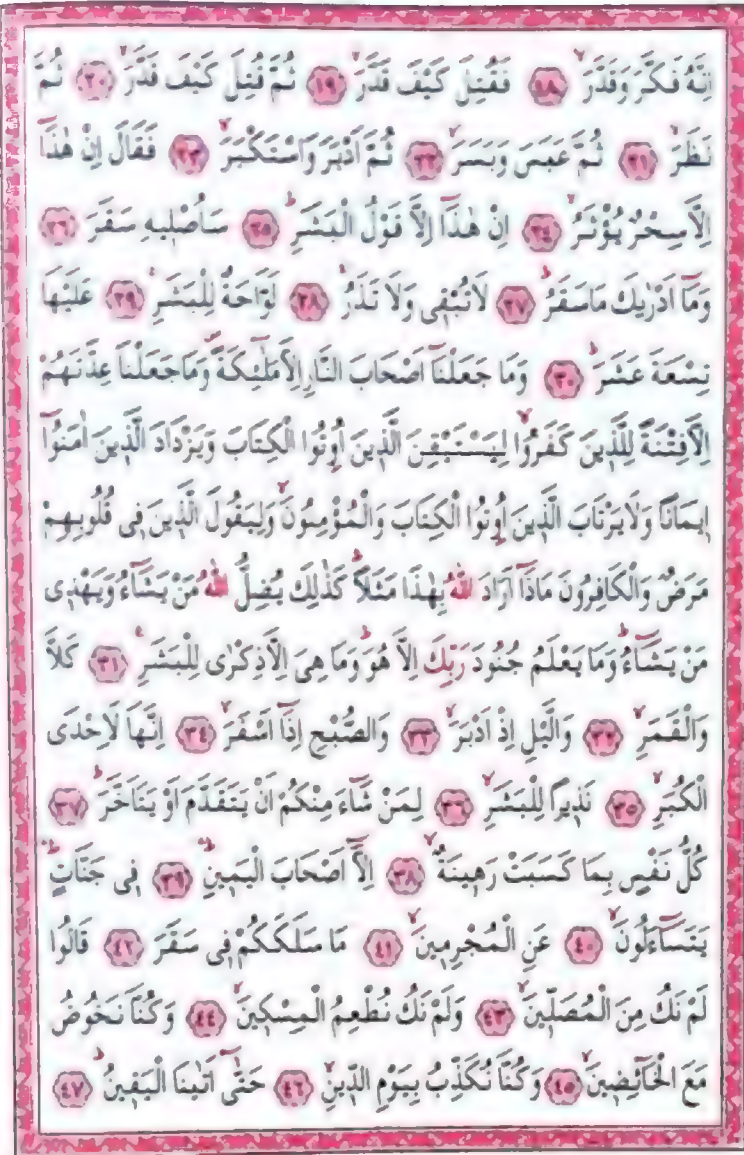 اِنَّهُ فَكَّرَ وَقَدَّرَۙ ﴿١٨﴾ فَقُتِلَ كَيْفَ قَدَّرَۙ ﴿١٩﴾ ثُمَّ قُتِلَ كَيْفَ قَدَّرَۙ ﴿٢٠﴾ ثُمَّ
نَظَرَۙ ﴿٢١﴾ ثُمَّ عَبَسَ وَبَسَرَۙ ﴿٢٢﴾ ثُمَّ اَدْبَرَ وَاسْتَكْبَرَۙ ﴿٢٣﴾ فَقَالَ اِنْ هٰذَٓا
اِلَّا سِحْرٌ يُؤْثَرُۙ ﴿٢٤﴾ اِنْ هٰذَٓا اِلَّا قَوْلُ الْبَشَرِۜ ﴿٢٥﴾ سَاُصْلٖيهِ سَقَرَ ﴿٢٦﴾
وَمَٓا اَدْرٰيكَ مَا سَقَرُۜ ﴿٢٧﴾ لَا تُبْقٖى وَلَا تَذَرُۚ ﴿٢٨﴾ لَوَّاحَةٌ لِلْبَشَرِۚ ﴿٢٩﴾ عَلَيْهَا
تِسْعَةَ عَشَرَۜ ﴿٣٠﴾ وَمَا جَعَلْنَٓا اَصْحَابَ النَّارِ اِلَّا مَلٰٓئِكَةًۖ وَمَا جَعَلْنَا عِدَّتَهُمْ
اِلَّا فِتْنَةً لِلَّذٖينَ كَفَرُواۙ لِيَسْتَيْقِنَ الَّذٖينَ اُو۫تُوا الْكِتَابَ وَيَزْدَادَ الَّذٖينَ اٰمَنُٓوا
اٖيمَانًا وَلَا يَرْتَابَ الَّذٖينَ اُو۫تُوا الْكِتَابَ وَالْمُؤْمِنُونَۙ وَلِيَقُولَ الَّذٖينَ فٖى قُلُوبِهِمْ
مَرَضٌ وَالْكَافِرُونَ مَاذَٓا اَرَادَ اللّٰهُ بِهٰذَا مَثَلًاۜ كَذٰلِكَ يُضِلُّ اللّٰهُ مَنْ يَشَٓاءُ وَيَهْدٖى
مَنْ يَشَٓاءُۜ وَمَا يَعْلَمُ جُنُودَ رَبِّكَ اِلَّا هُوَۜ وَمَا هِىَ اِلَّا ذِكْرٰى لِلْبَشَرِۚ ﴿٣١﴾ كَلَّا
وَالْقَمَرِۙ ﴿٣٢﴾ وَالَّيْلِ اِذْ اَدْبَرَۙ ﴿٣٣﴾ وَالصُّبْحِ اِذَٓا اَسْفَرَۙ ﴿٣٤﴾ اِنَّهَا لَاِحْدَى
الْكُبَرِۙ ﴿٣٥﴾ نَذٖيرًا لِلْبَشَرِۙ ﴿٣٦﴾ لِمَنْ شَٓاءَ مِنْكُمْ اَنْ يَتَقَدَّمَ اَوْ يَتَاَخَّرَۜ ﴿٣٧﴾
كُلُّ نَفْسٍ بِمَا كَسَبَتْ رَهٖينَةٌۙ ﴿٣٨﴾ اِلَّٓا اَصْحَابَ الْيَمٖينِۜۛ ﴿٣٩﴾ فٖى جَنَّاتٍۜۛ
يَتَسَٓاءَلُونَۙ ﴿٤٠﴾ عَنِ الْمُجْرِمٖينَۙ ﴿٤١﴾ مَا سَلَكَكُمْ فٖى سَقَرَ ﴿٤٢﴾ قَالُوا
لَمْ نَكُ مِنَ الْمُصَلّٖينَۙ ﴿٤٣﴾ وَلَمْ نَكُ نُطْعِمُ الْمِسْكٖينَۙ ﴿٤٤﴾ وَكُنَّا نَخُوضُ
مَعَ الْخَٓائِضٖينَۙ ﴿٤٥﴾ وَكُنَّا نُكَذِّبُ بِيَوْمِ الدّٖينِۙ ﴿٤٦﴾ حَتّٰٓى اَتٰينَا الْيَقٖينُۜ ﴿٤٧﴾